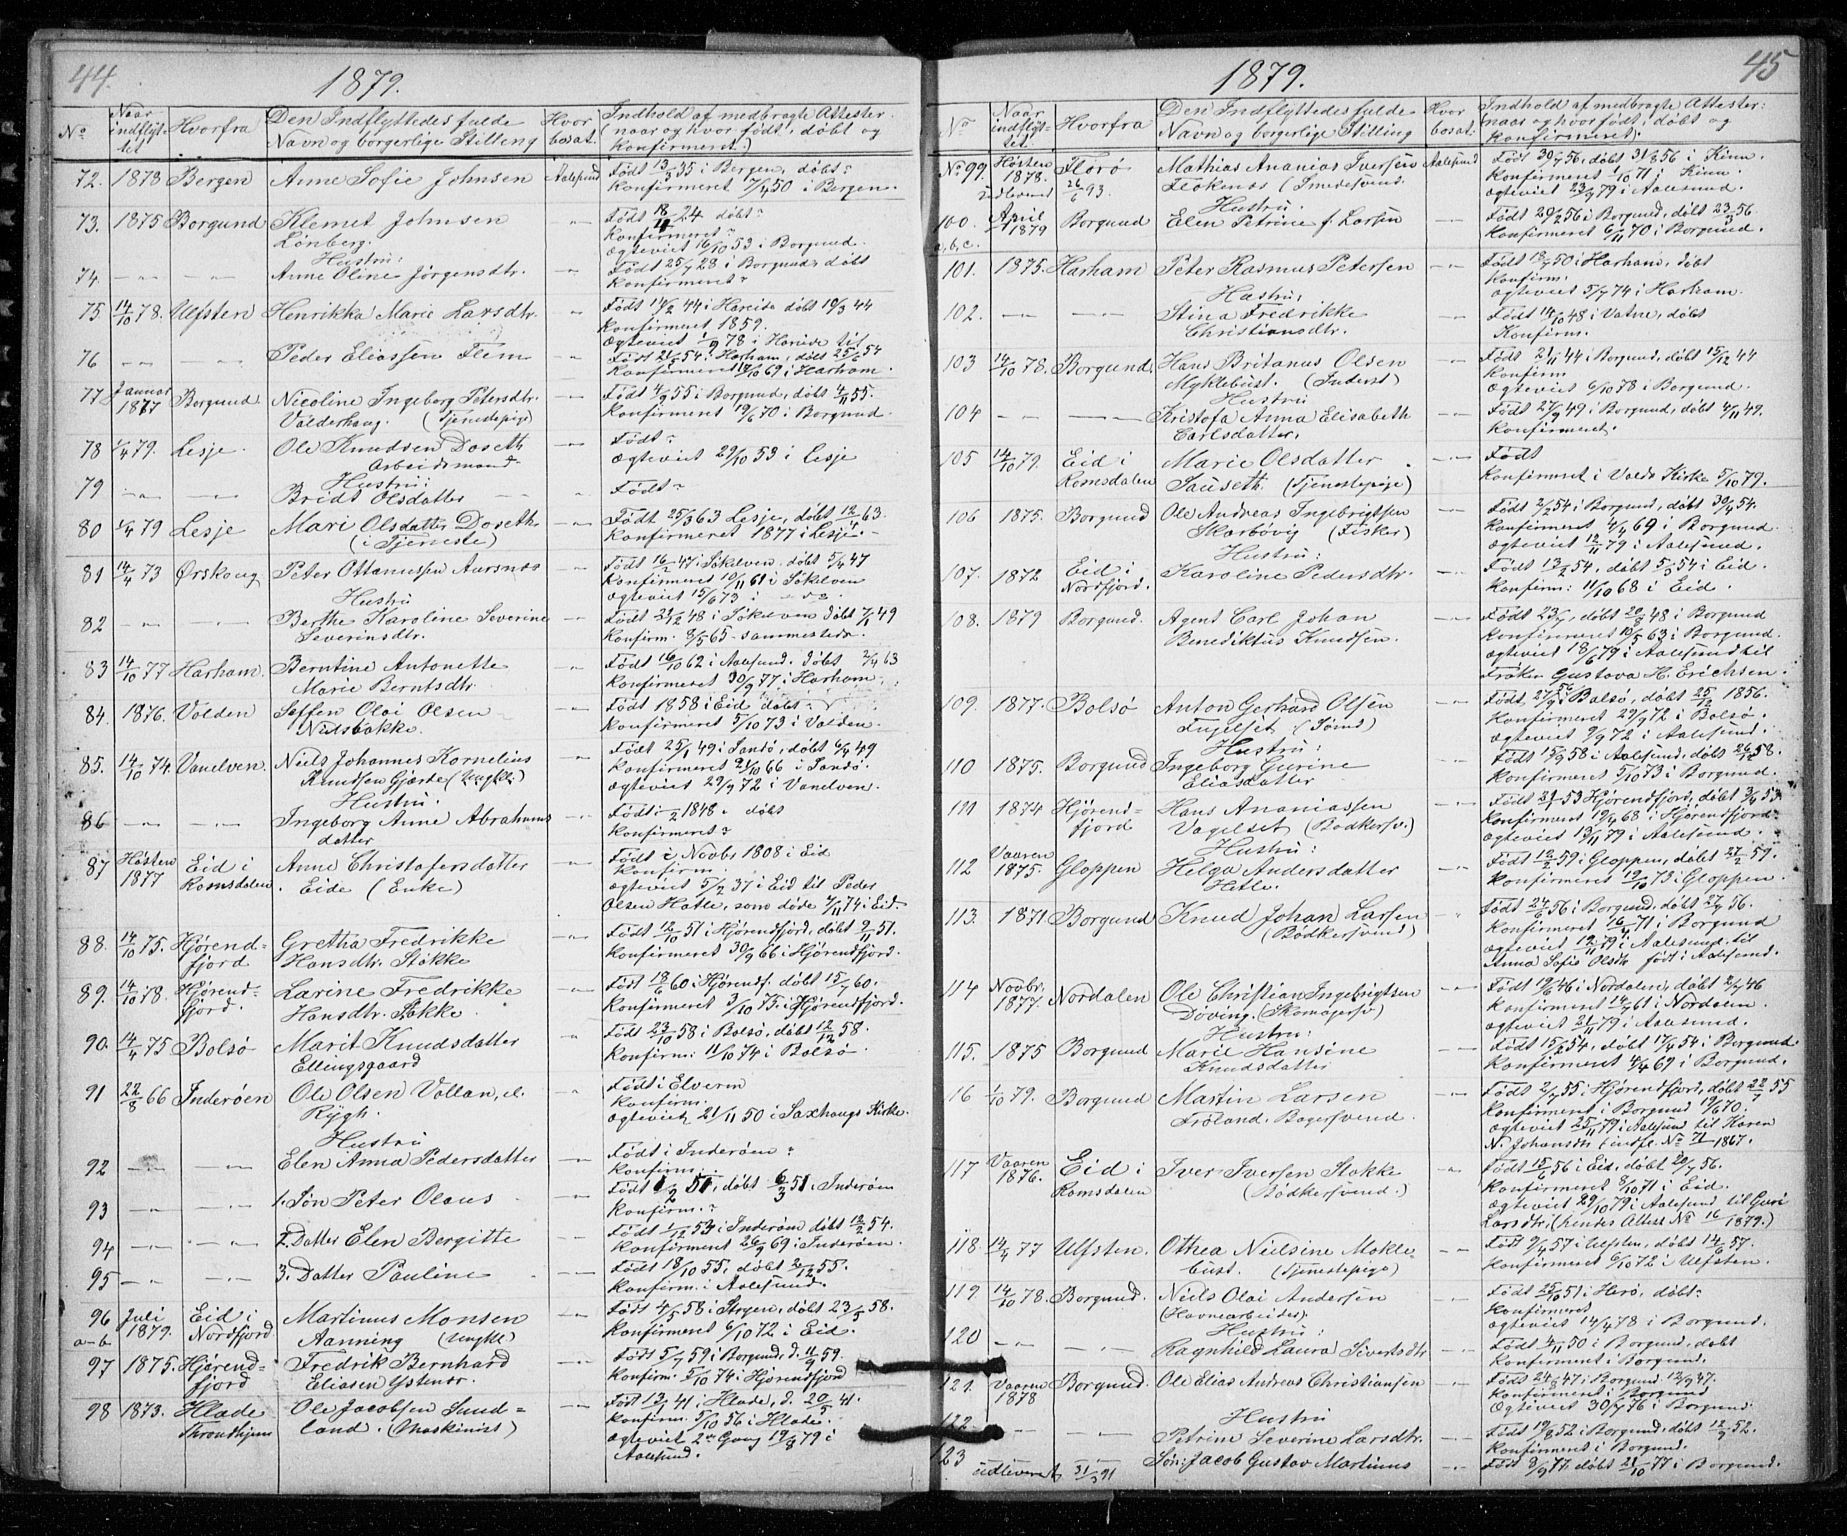 44.
1879.
No
Naar indflyttet
Hvorfra
Den Indflyttedes fulde Navn og borgerlige Stilling
Hvor bosat.
Indhold af medbragte Attester (naar og hvor født, døbt og konfirmeret.)
72. 1878 Bergen Anne Sofie Johnsen Aalesund Født 13/3 35 i Bergen, døbt
Konfirmeret 50 i Bergen.
73. 1875 Borgund Klemet Johnsen Født 24 døbt
Lønberg. Konfirmeret
Ægteviet 16/10 53 i Borgund.
Hustru:
74. Anne Oline Jørgensdtr. Født 25/7 28 i Borgund, døbt
Konfirmeret
75 14/10 78. Ulfsten Henrikka Marie Larsdtr. Født 14/2 44 i Hareide døbt 10/3 44
Konfirmeret 1859.
Ægteviet 1/9 78 i Hareide til
76 Peder Eliassen Flem Født 21/5 54 i Harham, døbt 25/6 54
Konfirmeret 69 i Harham.
77 Januar 1877 Borgund Nicoline Ingeborg Petersdtr. Født 4/9 55 i Borgund, døbt 4/11 55.
Valderhaug. (Tjenestepige) Konfirmeret 19/6 70 i Borgund.
78 1/4 79. Lesje. Ole Knudsen Doseth Født
Arbeidsmand Ægteviet 29/10 53 i Lesje
Hustru:
79 Bridt Olsdatter Født
80 1/4 79 Lesje Mari Olsdatter Doseth Født 25/3 63 Lesje, døbt 12/4 63.
(i Tjeneste) Konfirmeret 1877 i Lesje.
81 14/4 73 Ørskoug Peter Ottanussen Aursnæs Født 16/2 47 i Søkelven. døbt 5/4 47
Konfirmeret 10/11 61 i Søkelven
Ægteviet 15/6 73 i
Hustru
82 Berthe Karoline Severine Født 21/12 48 i Søkelven døbt 7/1 49
Severinsdtr. Konfirm. 8/5 65 sammesteds.
83 14/10 77 Harham. Berntine Antonette Født 16/10 62 i Aalesund. døbt 2/4 63
Marie Berntsdtr. Konfirmeret 30/9 77 i Harham.
84. 1876. Volden Steffen Olai Olsen Født 1858 i Eid døbt
Konfirmeret 5/10 73 i Volden.
85. 14/10 74. Vanelven. Niels Johannes Kornelius Født 25/1 49 i Sandø, døbt 49
Knudsen Gjærde (Ungkl.) Konfirmeret 21/10 66 i Sandø.
Ægteviet 29/9 72 i Vanelven.
Hustru.
86 Ingeborg Anne Abrahams Født 1848. døbt
datter Konfirmeret
87 Høsten 1877 Eid i Romsdalen Anne Christofersdatter Født i Novbr. 1808 i Eid
Eide (Enke) Konfirm.
Ægteviet 5/2 37 i Eid til Peder
Olsen Hatle, som døde 7/11 74 i Eid.
88. 14/10 75. Hjørendfjord Gretha Fredrikke Født 12/10 51 i Hjørendfjord, døbt 9/11 51.
Hansdtr. Støkke Konfirmeret 30/9 66 i Hjørendfjord.
89. 14/10 78. Hjørendfjord. Larine Fredrikke Født 18/6 60 i Hjørendf. døbt 15/7 60.
Hansdtr. Støkke Konfirmeret 3/10 75. i Hjørendfjord.
90. 14/4 75 Bolsø Marit Knudsdatter Født 23/10 58 i Bolsø, døbt 12/12 58.
Ellingsgaard Konfirm: 11/10 74 i Bolsø
91 22/8 66 Inderøen Ole Olsen Vollan, el. Født i Elverum
Rygh. Konfirm.
Ægteviet 21/11 50 i Saxhaugs Kirke.
Hustru
92 Elen Anna Pedersdatter Født i Inderøen
Konfirm.
93 1. Søn Peter Olaus Født 1/2 51, døbt 6/3 51. Inderøen
Konfirm.
94 2. Datter Elen Bergitte Født 1/12 53 i Inderøen døbt 12/2 54.
Konfirmeret 26/9 69 i Inderøen.
95 3. Datter Pauline Født 18/10 55, døbt 2/12 55.
Konfirm. i Aalesund.
96 a-b Juli 1879. Eid i Nordfjord Martinus Monsen Født 4/5 58 i Stryen, døbt 23/5 58.
Aanning (Ungkl) Konfirmeret 6/10 72 i Eid.
97 1875. Hjørendfjord Fredrik Bernhard Født 5/7 59 i Borgund, d. 11/9 59.
Eliasen Ystenæs. Konfirm. 10 74 i Hjørendfjord
98 1873. Hlade Throndhjem Ole Jacobsen Sund- Født 13/4 41 i Hlade, d. 20/5 41.
land. (Maskinist) Konfirm. 5/10 56 i Hlade.
Ægteviet 2den Gang 19/8 79 i
Aalesund.
45
1879.
No
Naar indflyttet.
Hvorfra
Den Indflyttedes fulde Navn og borgerlige Stilling
Hvor bosat.
Indhold af medbragte Attester: naar og hvor født, døbt og konfirmeret.
No 99. Høsten 1878. Florø Mathias Ananias Iversen Aalesund Født 30/7 56, døbt 31/8 56 i Kinn.
udleveret 26/6 93. (Smedesvend Konfirmeret 1/10 71 i Kinn.
Ægteviet 23/9 79 i Aalesund.
Hustru.
100. a,b,c. April 1879 Borgund Elen Petrine f. Larsen Født 29/2 56 i Borgund, døbt 23/3 56
Konfirmeret 6/11 70 i Borgund.
101. 1875. Harham Peter Rasmus Petersen Født 50 i Harham, døbt
Konfirm.
Ægteviet 5/7 74 i Harham.
Hustru,
102. Stina Fredrikke Født 14/10 48 i Vatne, døbt
Christiansdtr. Konfirm.
103 14/10 78. Borgund. Hans Britanus Olsen Født 21/11 44 i Borgund, døbt 15/12 44
Myklebust. (Inderst) Konfirm
Ægteviet 6/10 78 i Borgund.
Hustru
104 Kristofa Anna Elisabeth Født 27/9 49 i Borgund, døbt 4/11 49.
Carlsdatter. Konfirmeret.
105 14/10 79. Eid i Romsdalen Marie Olsdatter Født
Sauseth. (Tjenestepige) Konfirmeret i Volds Kirke 5/10 79.
106 1875. Borgund Ole Andreas Ingebrigtsen Født 2/2 54 i Borgund, døbt 30/4 54.
Skarbøvig (Fisker) Konfirmeret 4/4 69 i Borgund
Ægteviet 12/11 79 i Aalesund.
Hustru:
107. 1872 Eid i Nordfjord. Karoline Pedersdtr. Født 12/2 54, døbt 5/3 54 i Eid.
Konfirm: 11/10 68 i Eid.
108. 1879 Borgund. Agent Carl Johan Født 23/7, døbt 20/8 48 i Borgund
Benediktus Knudsen. Konfirmeret 10/5 63 i Borgund.
Ægteviet 18/6 79 i Aalesund til
Frøken Gustava H. Erichsen.
109. 1877. Bolsø Anton Gerhard Olsen Født 27/9 i Bolsø, døbt 25/12 1856.
Fugelset (Tømd) Konfirmeret 29/9 72 i Bolsø.
Ægteviet 9/9 72 i Aalesund.
Hustru:
110 1875. Borgund Ingeborg Gurine Født 15/9 58 i Aalesund, døbt 26/12 58.
Eliasdatter Konfirmeret 5/10 73 i Borgund.
111 1874 Hjørendfjord Hans Ananiassen Født 53 Hjørendfjord, døbt 3/4 53
(Bødkersv.) Konfirmeret 19/4 68 i Hjørendfjord
Ægteviet 13/11 79 i Aalesund.
Hustru:
112 Vaaren 1875. Gloppen Helga Andersdatter Født 12/2 59 i Gloppen, døbt 27/2 59.
Hetle. Konfirmeret 12/10 73 i Gloppen.
113. 1871. Borgund Knud Johan Larsen Født 24/6 56 i Borgund, døbt 27/7 56.
(Bødkersvend) Konfirmeret 16/4 71 i Borgund
Ægteviet 12/11 79 i Aalesund til
Anna Sofie Olsdtr født i Aalesund.
114 Novbr. 1877. Nordalen Ole Christian Ingebrigtsen Født 19/6 46 i Nordalen, døbt 2/7 46
Døving. (Skomagersv) Konfirmeret 14/7 61 i Nordalen.
Ægteviet 21/11 79 i Aalesund.
Hustru:
115. 1875 Borgund Marie Hansine Født 15/2 54. døbt 17/4 54 i Borgund
Knudsdatter Konfirmeret 4/4 69 i Borgund.
16 1/10 79. Borgund Martin Larsen Født 2/7 55 i Hjørendfjord, døbt 22/7 55
Frøland. Bagersvend. Konfirmeret i Borgund 19/6 70.
Ægteviet 25/11 79 i Aalesund til Karen
N. Johansdtr indfl. No 71/1867.
117 Vaaren 1876. Eid i Romsdalen Iver Iversen Stokke Født 15/6 56 i Eid, døbt 20/7 56.
(Bødkersvend.) Konfirmeret 8/10 71 i Eid.
Ægteviet 29/10 79 i Aalesund til Guri
Larsdtr. (hendes Attest No 16/1879.)
118. 14/4 77 Ulfsten. Othea Nielsine Mokle- Født 9/4 57 i Ulfsten, døbt 14/6 57.
bust. (Tjenestepige) Konfirmeret 6/10 72 i Ulfsten.
119 14/10 78. Borgund. Niels Olai Andersen Født 25/10 51 i Herø, døbt
(Havnearbeider) Konfirmeret
Ægteviet 14/4 78 i Borgund.
Hustru:
120 Ragnhild Laura Sivertsdtr Født 4/11 50 i Borgund, døbt
Konfirmeret i Borgund.
121. Vaaren 1878 Borgund. Ole Elias Andreas Christiansen Født 24/8 47 i Borgund. 12/9 47.
Konfirmeret i Borgund
Ægteviet 30/7 76 i Borgund.
Hustru
122 Petrine Severine Larsdtr. Født 19/8 52 i Borgund, døbt 12/9 52.
Konfirmeret i Borgund.
123 udleveret 31/3 91 Søn: Jacob Gustav Martinus Født 8/9 77. døbt 21/10 77 i Borgund.